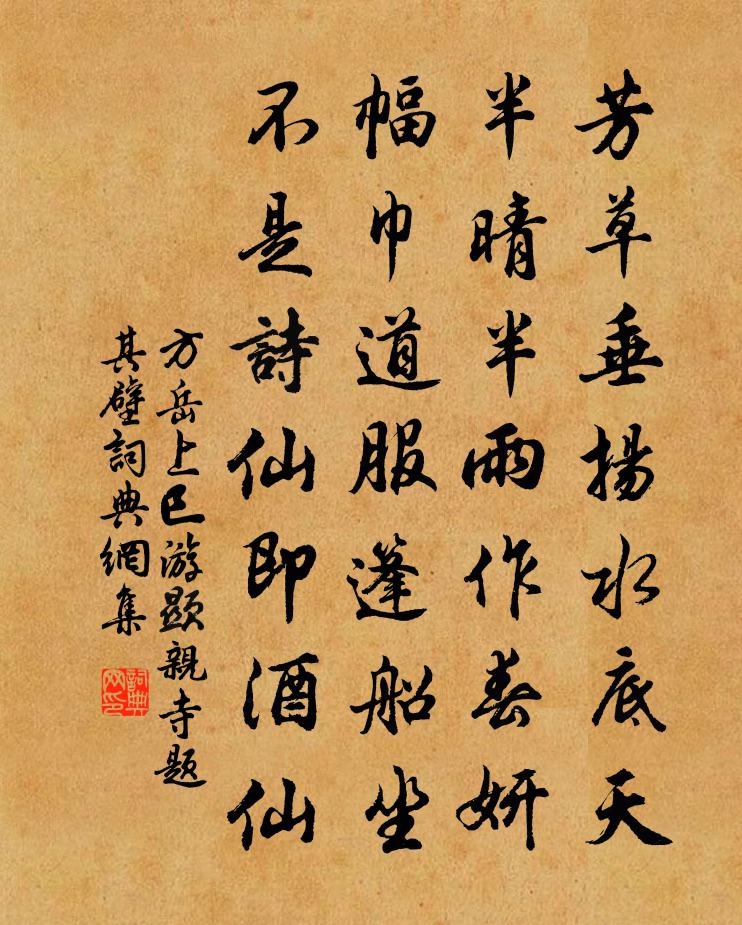 芳草垂揚水底天
半晴半雨作春妍
幅巾道服蓬船坐
不是詩仙即酒仙
方岳上巳游顯親寺題
其壁詞典網集
詞典网印